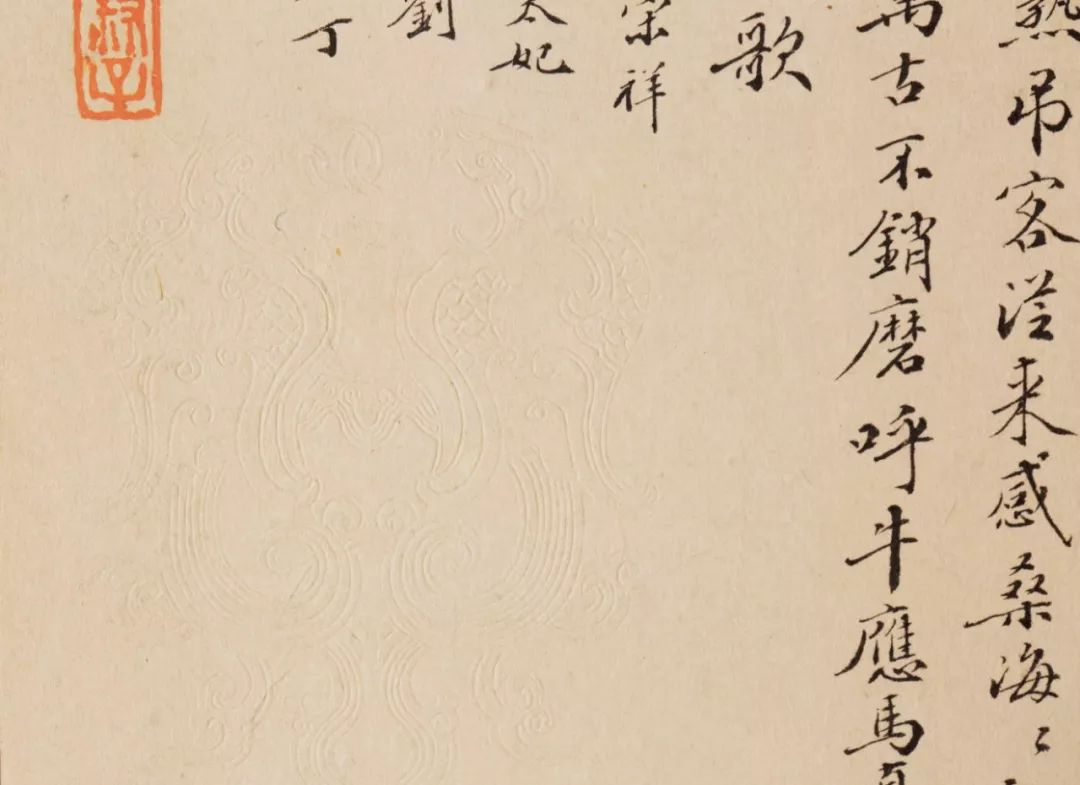 熱吊客從来感桑海〻
萬古不銷磨呼牛應馬
歌
宗祥
太妃
劉
丁